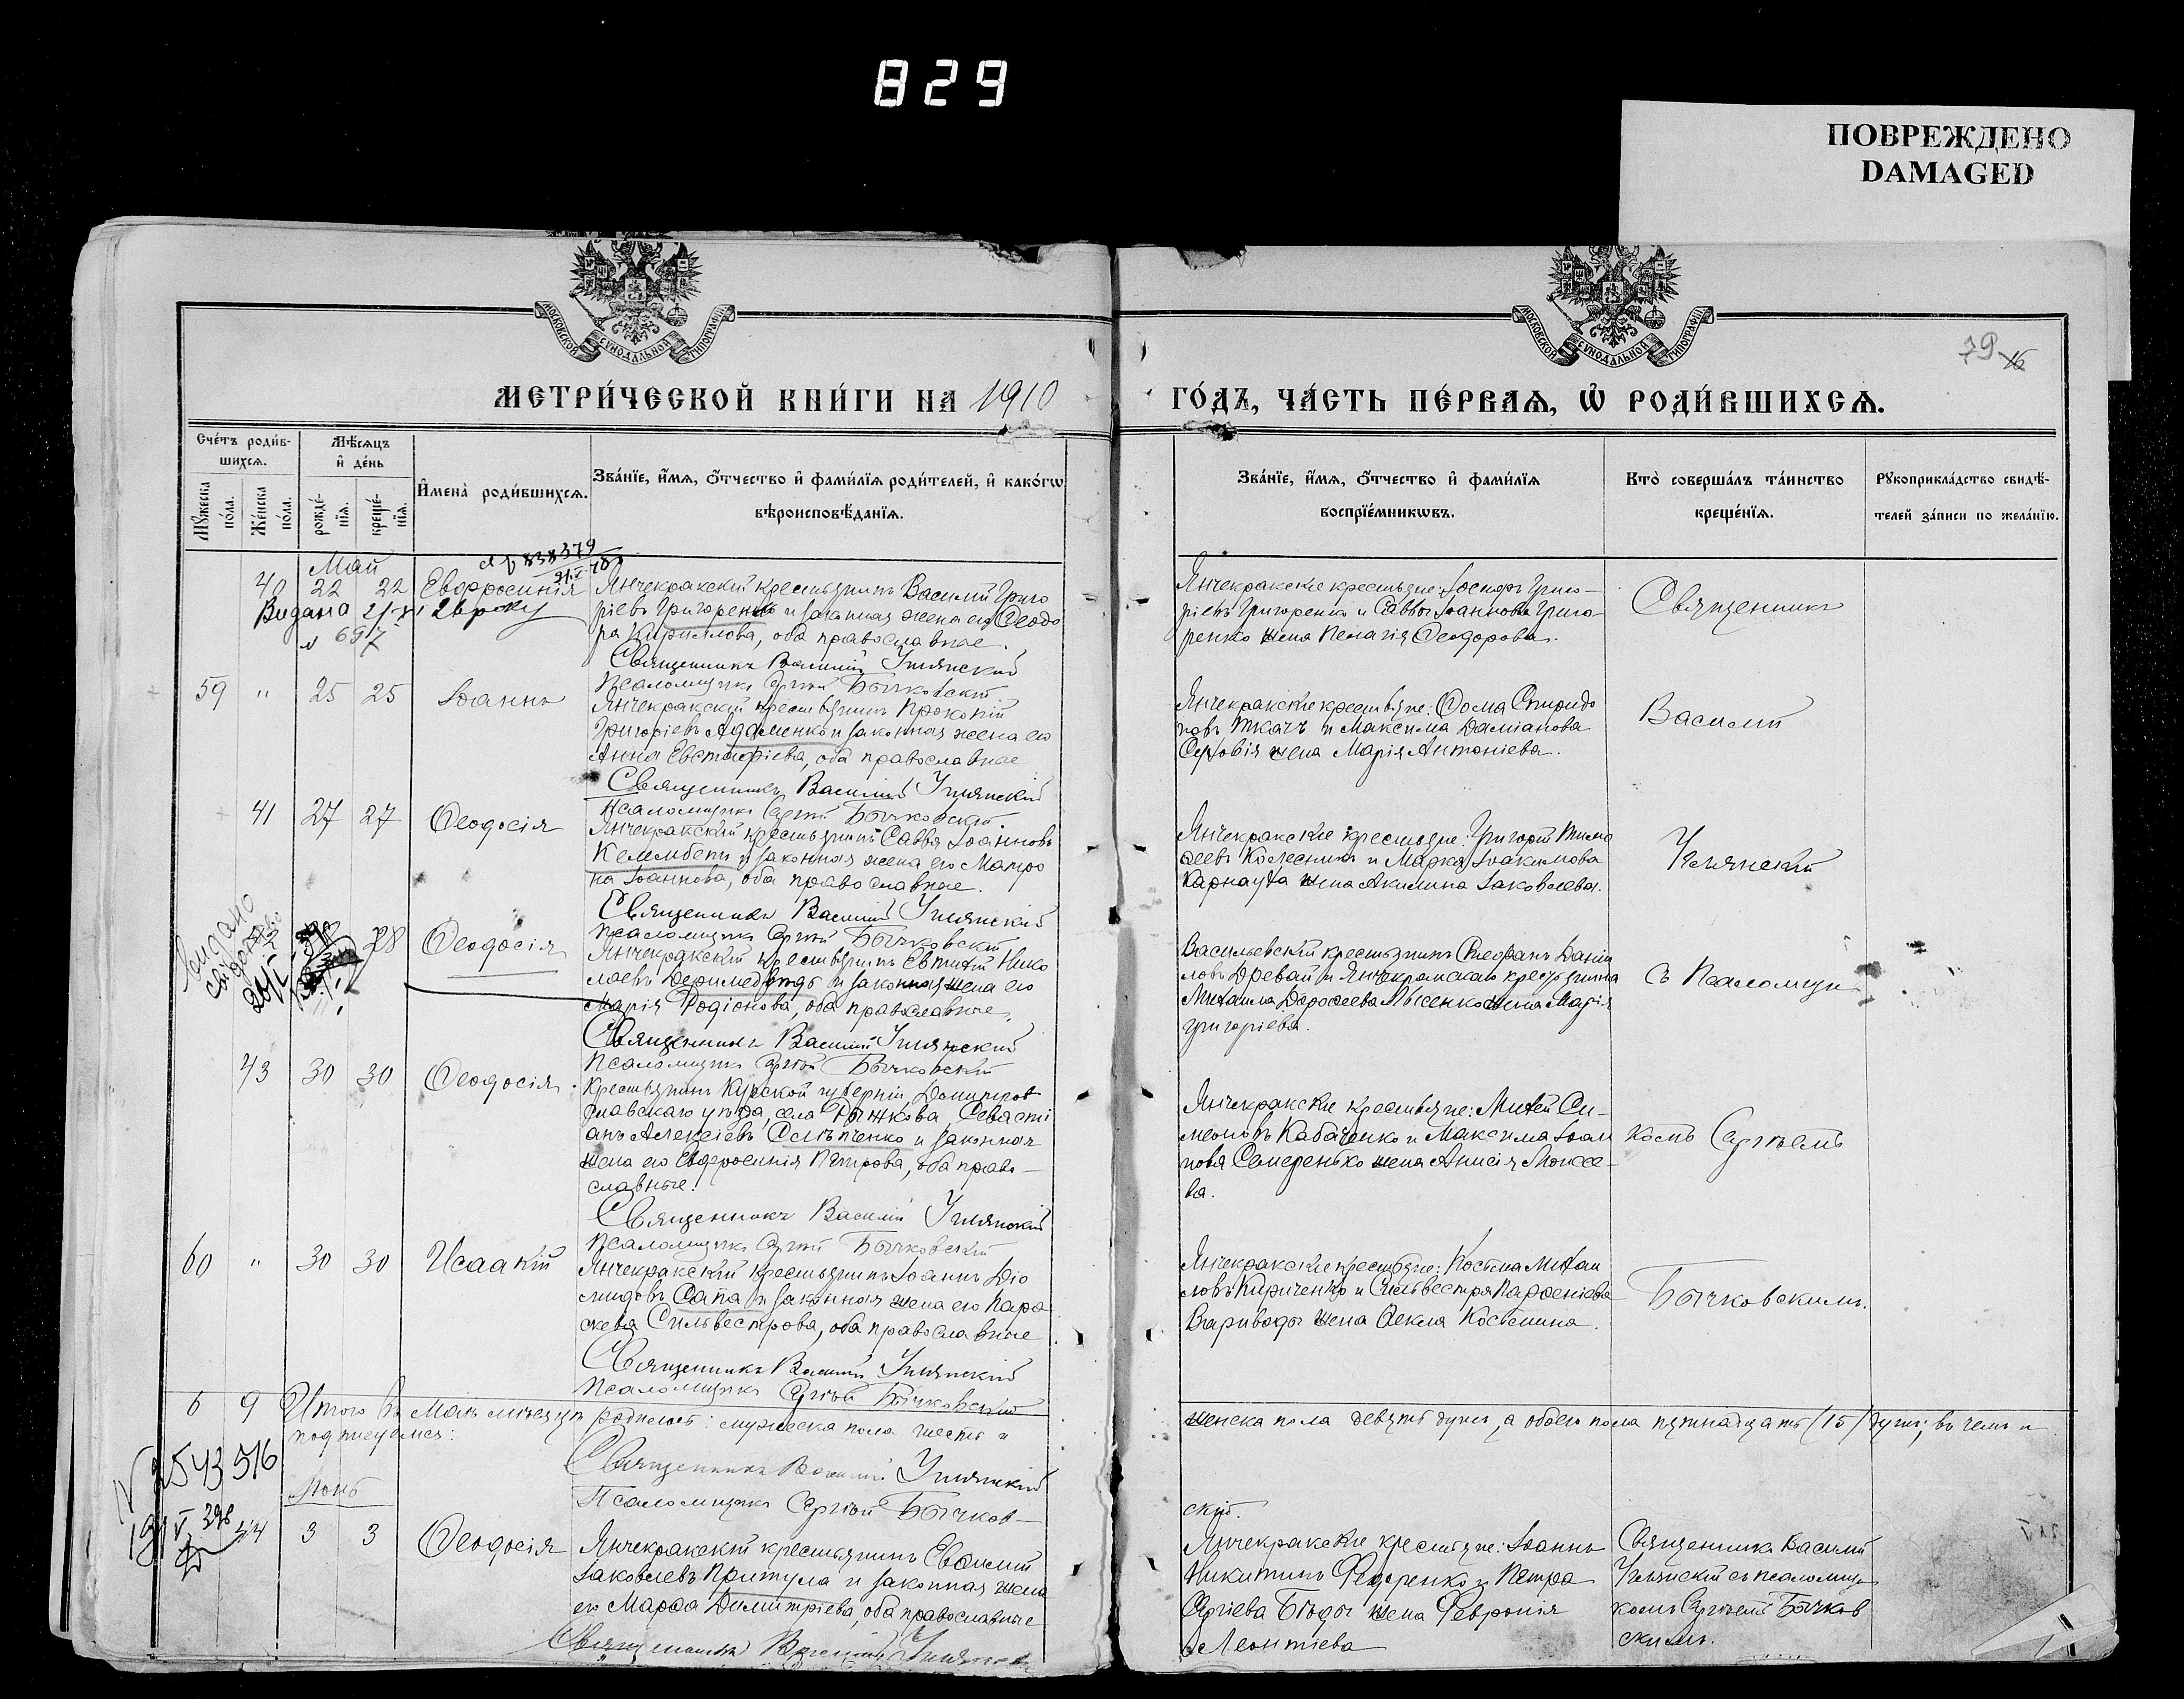 829
ПОВРЕЖДЕНО
DAMAGED
МОСКОВСКОЙ СУНОДАЛЬНОЙ ТИПОГРАФІИ
МОСКОВСКОЙ СУНОДАЛЬНОЙ ТИПОГРАФІИ
79
МЕТРИ́ЧЕСКОЙ КНИ́ГИ НА 1910
ГО́ДЪ, ЧА́СТЬ ПЕ́РВАѦ, Ѡ РОДИ́ВШИХСѦ.
Счетъ родив-
шихсѧ.
Мужеска
пола.
Женска
пола.
Мѣсѧцъ
и день
рожде-
нїѧ.
креще-
нїѧ.
Имена родившихсѧ.
Званїе, имѧ, отчество и фамилїѧ родителей, и какогѡ
вѣроисповѣданїѧ.
Званїе, имѧ, отчество и фамилїѧ
воспрїемникѡвъ.
Кто совершалъ таинство
крещенїѧ.
Рукоприкладство свидѣ-
телей записи по желанїю.
Май
838379
40 22 22 Евфросинія Янчекракскій крестьянинъ Василій Григо
ріевъ Григоренко и законная жена его Ѳеодо
ра Кириллова, оба православные.
Видана
697
Священникъ Василій
Псаломщикъ Сергій Бычковскій
Янчекракские крестьяне: Іосифъ Григо-
ріевъ Григоренко и Саввы Іоаннова Григо-
ренко жена Пелагія Ѳеодорова.
Священникъ
59 " 25 25 Іоаннъ
Янчекракскій крестьянинъ Прокопій
Григоріевъ Адаменко и законная жена его
Анна Евстафіева, оба православные
Священникъ Василій
Псаломщикъ Сергій Бычковскій
Янчекракские крестьяне: Ѳома Спиридо
новъ Ткачъ и Максима Даміанова
жена Марія Антоніева.
Василій
41 27 27 Ѳеодосія
Янчекракскій крестьянинъ Савва Іоанновъ
Келембетъ и законная жена его Матро
на Іоаннова, оба православные.
Священникъ Василій
Псаломщикъ Сергій Бычковскій
Янчекракские крестьяне: Григорій Тимо
ѳеевъ Колесникъ и Марка Іоакимова
Карнауха жена Акилина Іаковлева.
28 Ѳеодосія
Янчекракскій крестьянинъ Евѳимій Нико
лаевъ и законная жена его
Марія Родіонова, оба православные.
Священникъ Василій
Псаломщикъ Сергій Бычковскій
Васильевскій крестьянинъ Стефанъ Даніи
ловъ Древаль и Янчекракскаго крестьянина
Михаила Дороѳеева Лысенко жена Марія
Григоріева.
съ Псаломщи
43 30 30 Ѳеодосія
Крестьянинъ Курской губерніи Дмитров
славскаго уѣзда, села Рыжкова, Севасті
анъ Алексіевъ и законная
жена его Евфросинія Петрова, оба право-
славные.
Священникъ Василій
Псаломщикъ Сергій Бычковскій
Янчекракские крестьяне: Михей Си-
меоновъ Кабаченко и Максима Іоан
нова Семеренько жена Анисія Моисее-
ва.
комъ Сергіемъ
60 " 30 30 Исаакій
Янчекракскій крестьянинъ Іоаннъ Діо
мидовъ Сапа и законная жена его Пара
скева Сильвестрова, оба православные
Священникъ Василій
Псаломщикъ Сергій Бычковскій
Янчекракские крестьяне: Косьма Михаи
ловъ Кириченко и Сильвестра Парѳеніева
Вариводы жена Ѳекла Космина.
Бычковскимъ.
6 9 Итого въ Маѣ мѣсяцѣ родилось: мужеска пола шесть и
женска пола девять душъ, а обоего пола пятнадцать (15) душъ; въ чемъ и
подписуемся:
Священникъ Василій
Псаломщикъ Сергій Бычков-
скій.
2543 516
Іюнь
44 3 3 Ѳеодосія Янчекракскій крестьянинъ Евѳимій
Іаковлевъ Притула и законная жена
его Марѳа Димитріева, оба православные
Священникъ Василій
Янчекракские крестьяне: Іоаннъ
Никитинъ Федоренко и Петра
Сергіева жена Феврония
Леонтіева
Священникъ Василій
съ псаломщи
комъ Сергіемъ Бычков
скимъ.